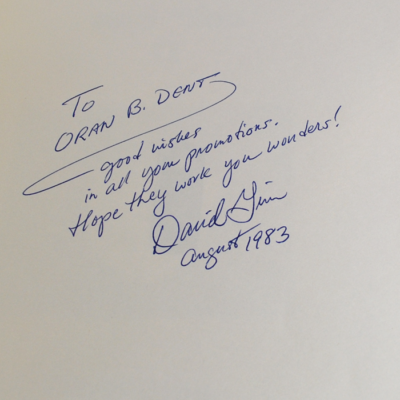 To
ORAN B. DENT
good wishes
in all your promotions.
Hope they work you wonders!
David Ginn
August 1983